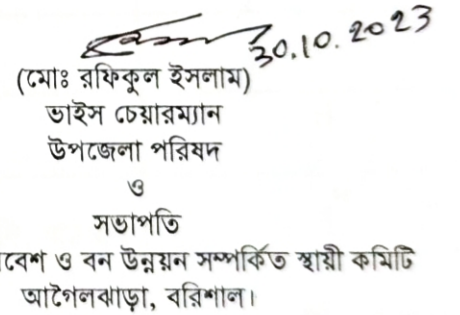 30.10.2023
(মোঃ রফিকুল ইসলাম)
ভাইস চেয়ারম্যান
উপজেলা পরিষদ
ও
সভাপতি
বেশ ও বন উন্নয়ন সম্পর্কিত স্থায়ী কমিটি
আগৈলঝাড়া, বরিশাল।